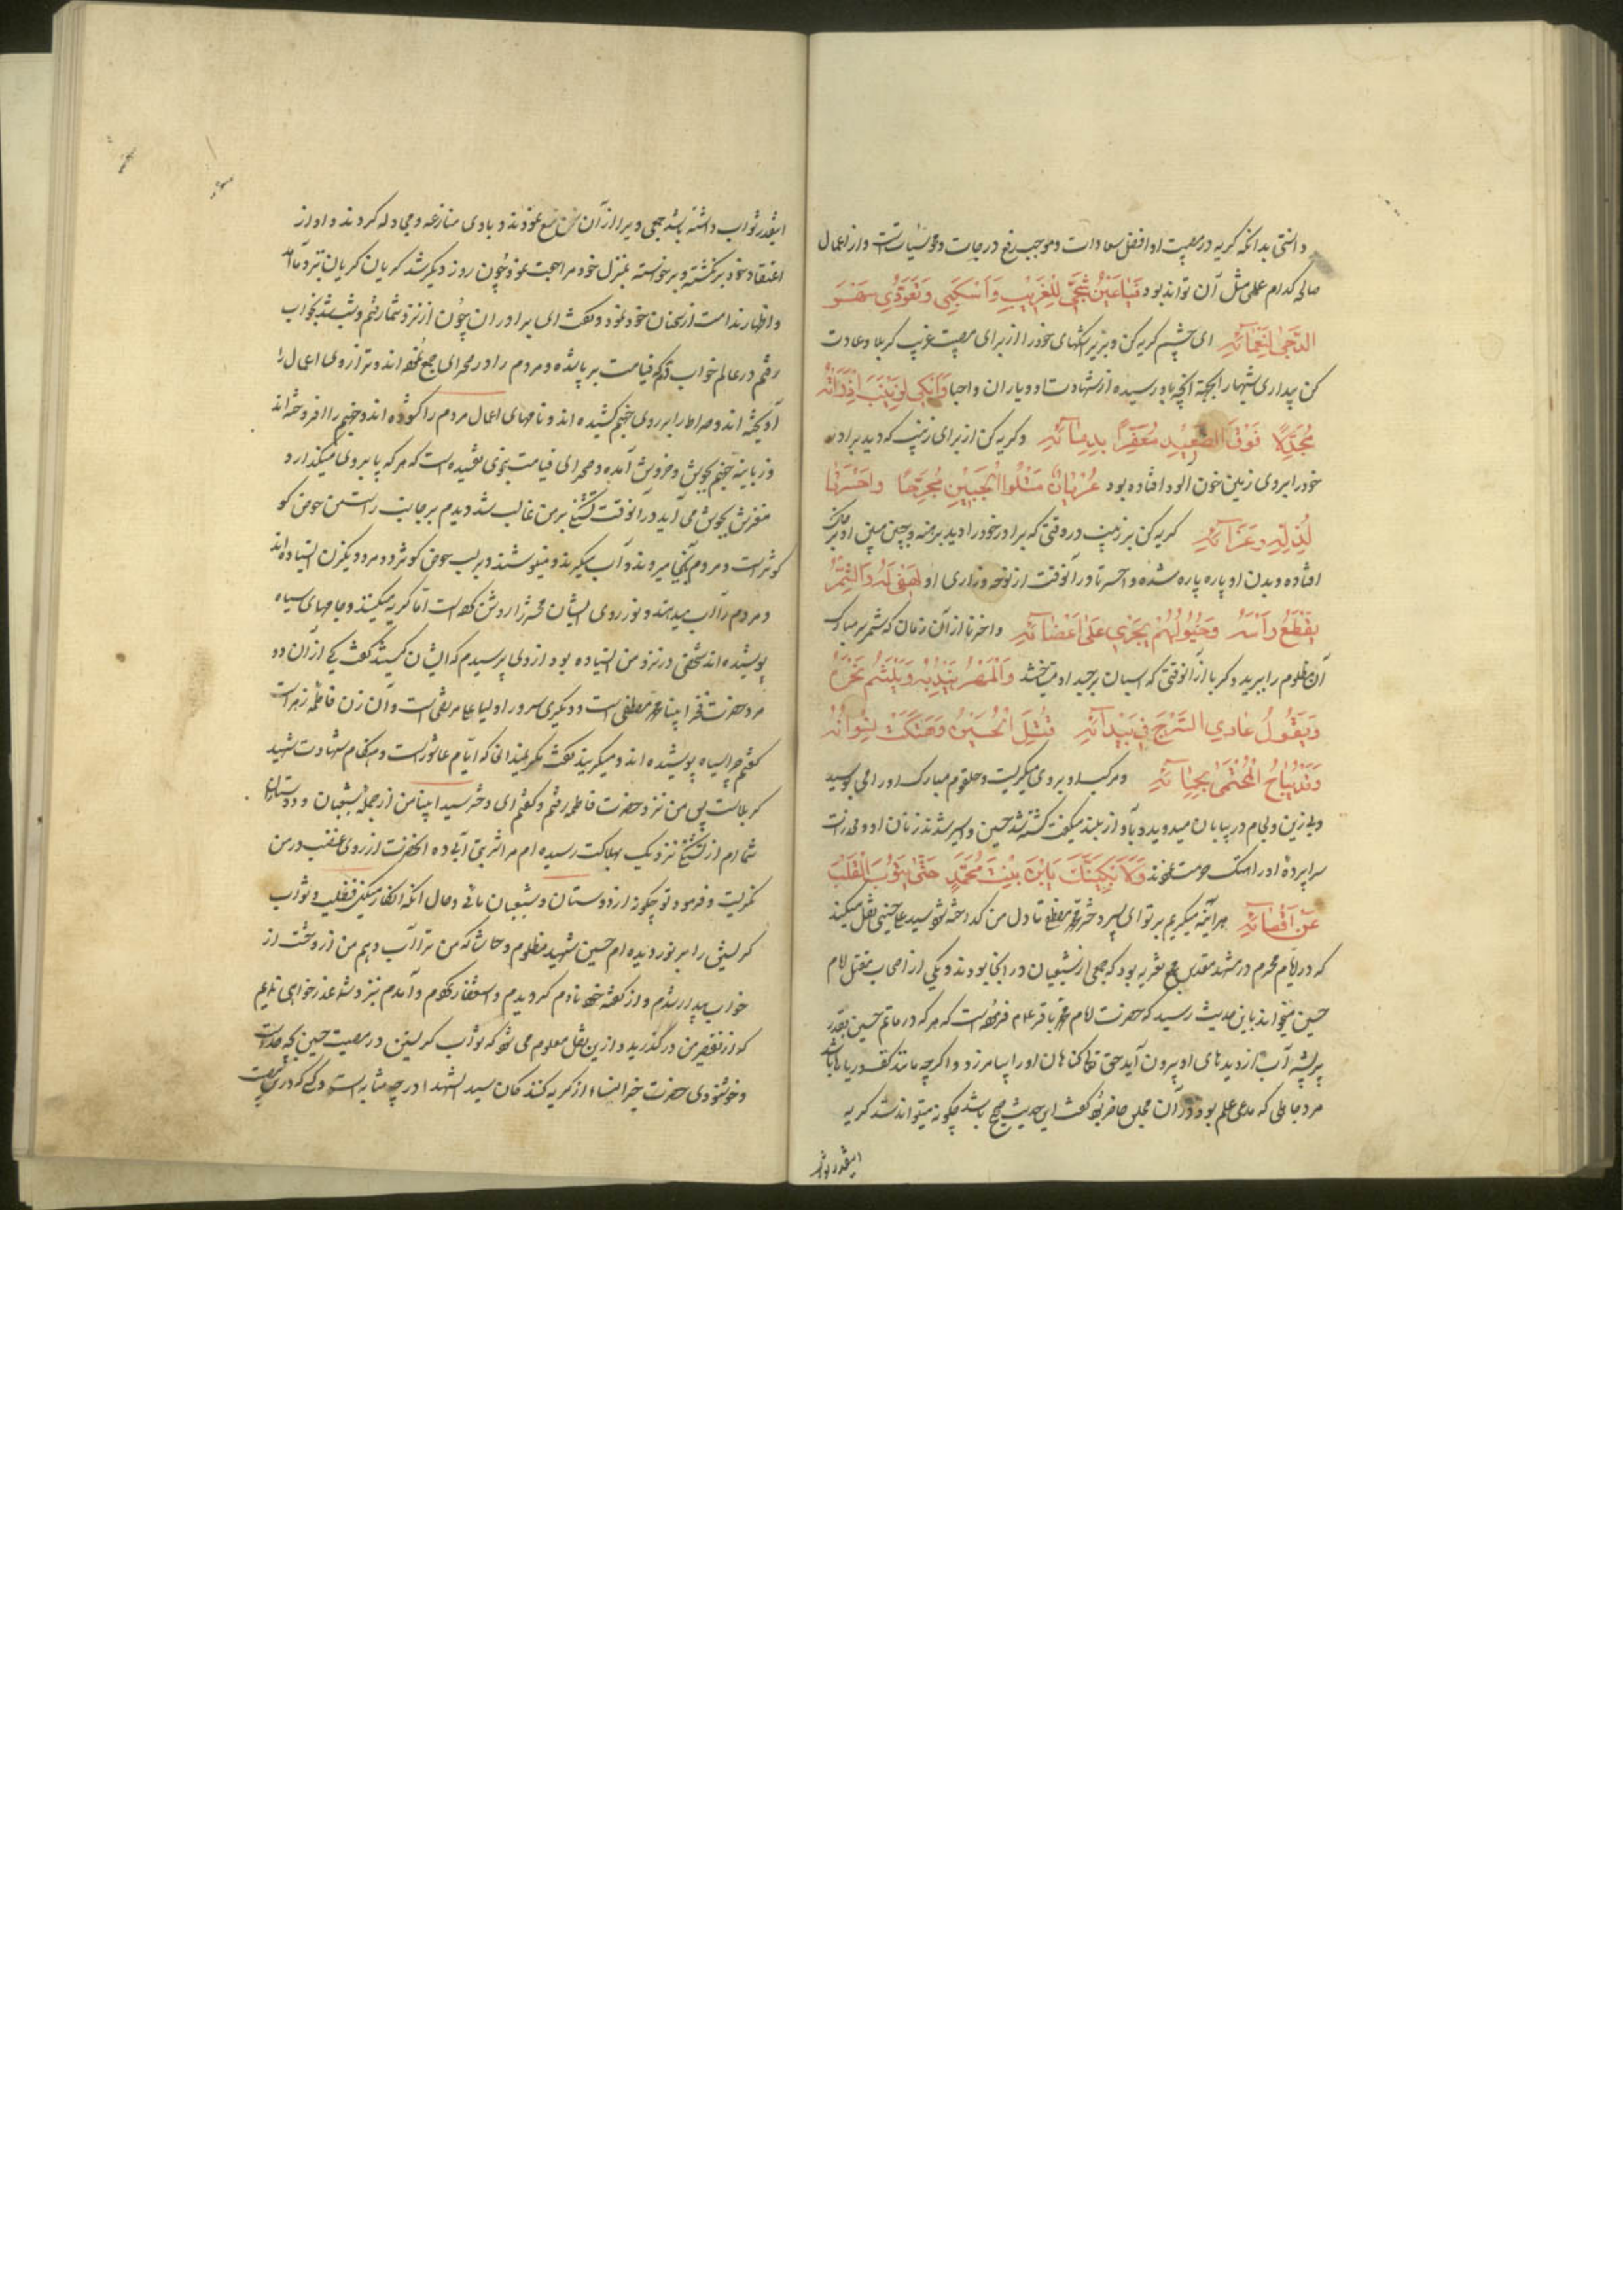 دانستی بدانکه گریه در مصیبت او افضل سعادات و موجب رفع درجات و محو سیئات است و از اعمال
صالحه کدام عملی مثل آن تواند بود فیا عین شجی للغریب و اسکبی و تعودی سهر
الدجی لنعمائه ای چشم گریه کن و بریز اشکهای خود را از برای مصیبت غریب کربلا و عادت
کن بیداری شبها را بجهة آنچه باو رسیده از شهادت او و یاران و احبا وابکی لزینب اذ رأته
مجدلا فوق الصعید معفرا بدمائه و گریه کن از برای زینب که دید برادر
خود را بروی زمین خون آلود افتاده بود عریان مثلوا الجبین مجرحا واحسرتا
لذله وعزائه گریه کن بر زینب در وقتی که برادر خود را دید برهنه و جبین مبین او بر خاک
افتاده و بدن او پاره پاره شده وا حسرتا در آنوقت از نوحه و زاری او لهفی له والشمر
یقطع رأسه وخیولهم تجری علی اعضائه وا حزنا از آن زمان که شمر سر مبارک
آن مظلوم را ببرید و کربا از آنوقتی که اسبان بر جسد او میتاختند والمهر یندبه ویلثم نحره
ویقول عادی السرج فی بیدائه قتل الحسین وهتکت نسوانه
و مرکب او بروی میگریست و حلقوم مبارک او را می بوسید
و بی زین و لجام در بیابان میدوید و بآواز بلند میگفت کشته شد حسین و اسیر شدند زنان او
سراپرده او را هتک حرمت نمودند ولأبکینک یابن بنت محمد حتی یذوب القلب
عن اقصائه هر آینه میگریم بر تو ای پسر دختر محمد مصطفی تا دل من گداخته شود سید علی حسینی نقل میکند
که در ایام محرم در مشهد مقدس مجمع تعزیه بود که جمعی از شیعیان در آنجا بودند و یکی از اصحاب مقتل امام
حسین میخواند باین حدیث رسید که حضرت امام محمد باقر علیه السلام فرموده است که هر که در ماتم حسین بقدر
پر پشه آب از دیدهای او بیرون آید حق تعالی گناهان او را بیامرزد و اگرچه مانند کف دریاها باشد
مرد جاهلی که مدعی علم بود و در آن مجلس حاضر بود گفت این حدیث صحیح باشد چگونه میتواند شد گریه
اینقدر ثواب
اینقدر ثواب داشته باشد جمعی ویرا از آن سخن منع نمودند و با وی منازعه و مجادله کردند و او از
اعتقاد خود برنگشته و برخواسته بمنزل خود مراجعت نمود و چون روز دیگر شد گریان گریان نزد ما آمد
و اظهار ندامت از سخنان خود نمود و گفت ای برادران چون از نزد شما رفتم و شب شد بخواب
رفتم در عالم خواب دیدم که قیامت بر پا شده و مردم را در صحرای جمع نموده اند و ترازوی اعمال را
آویخته اند و صراط را بر روی جهنم کشیده اند و نامهای اعمال مردم را گشوده اند و جهنم را افروخته اند
و زبانیه جهنم بجوش و خروش آمده و صحرای قیامت بنوعی تفسیده است که هر که پا بروی میگذارد
مغزش بجوش می آید در آنوقت تشنگی بر من غالب شد دیدم بر جانب راستین حوض کو
کوثر است و مردم بآنجا میروند و آب میگیرند و مینوشند و بر لب حوض کوثر دو مرد و یکزن ایستاده اند
و مردم را آب میدهند و نور روی ایشان محشر را روشن کرده است اما گریه میکنند و جامهای سیاه
پوشیده اند شخصی در نزد من ایستاده بود از وی پرسیدم که ایشان کیستند گفت یکی از آن دو
مرد حضرت فخر انبیا محمد مصطفی است و دیگری سرور اولیا علی مرتضی است و آن زن فاطمه زهراست
گفتم چرا سیاه پوشیده اند و میگریند گفت مگر نمیدانی که ایام عاشوراست و هنگام شهادت شهید
کربلاست پس من نزد حضرت فاطمه رفتم و گفتم ای دختر سید انبیا من از جمله شیعیان و دوستان
شمایم از تشنگی نزدیک بهلاکت رسیده ام مرا شربتی آبی ده آنحضرت از روی غضب در من
نگریست و فرمود تو چگونه از دوستان و شیعیان مائی و حال آنکه انکار میکنی فضیلت و ثواب
گریستن را بر نور دیده ام حسین شهید مظلوم و حاشا که من ترا آب دهم من از وحشت از
خواب بیدار شدم و از گفته خود نادم گردیدم و استغفار نمودم و آمدم نزد شما عذر خواهی نمایم
که از تقصیر من درگذرید و ازین نقل معلوم می شود که ثواب گریستن در مصیبت حسین بچه حد است
و خوشنودی حضرت خیر النساء از گریه کنندکان سید الشهدا در چه مثابه است